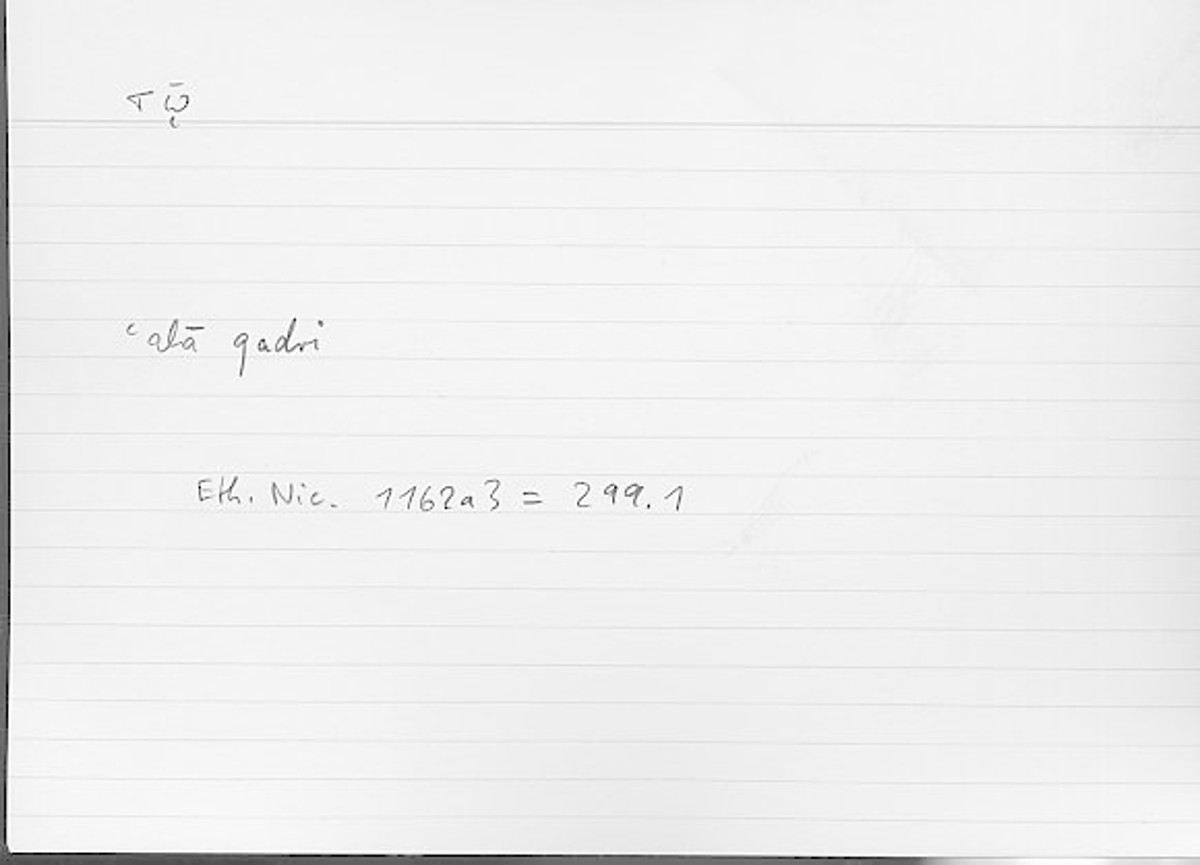 τῳ̄
ʿalā qadri
Eth. Nic. 1162a3 = 299.1